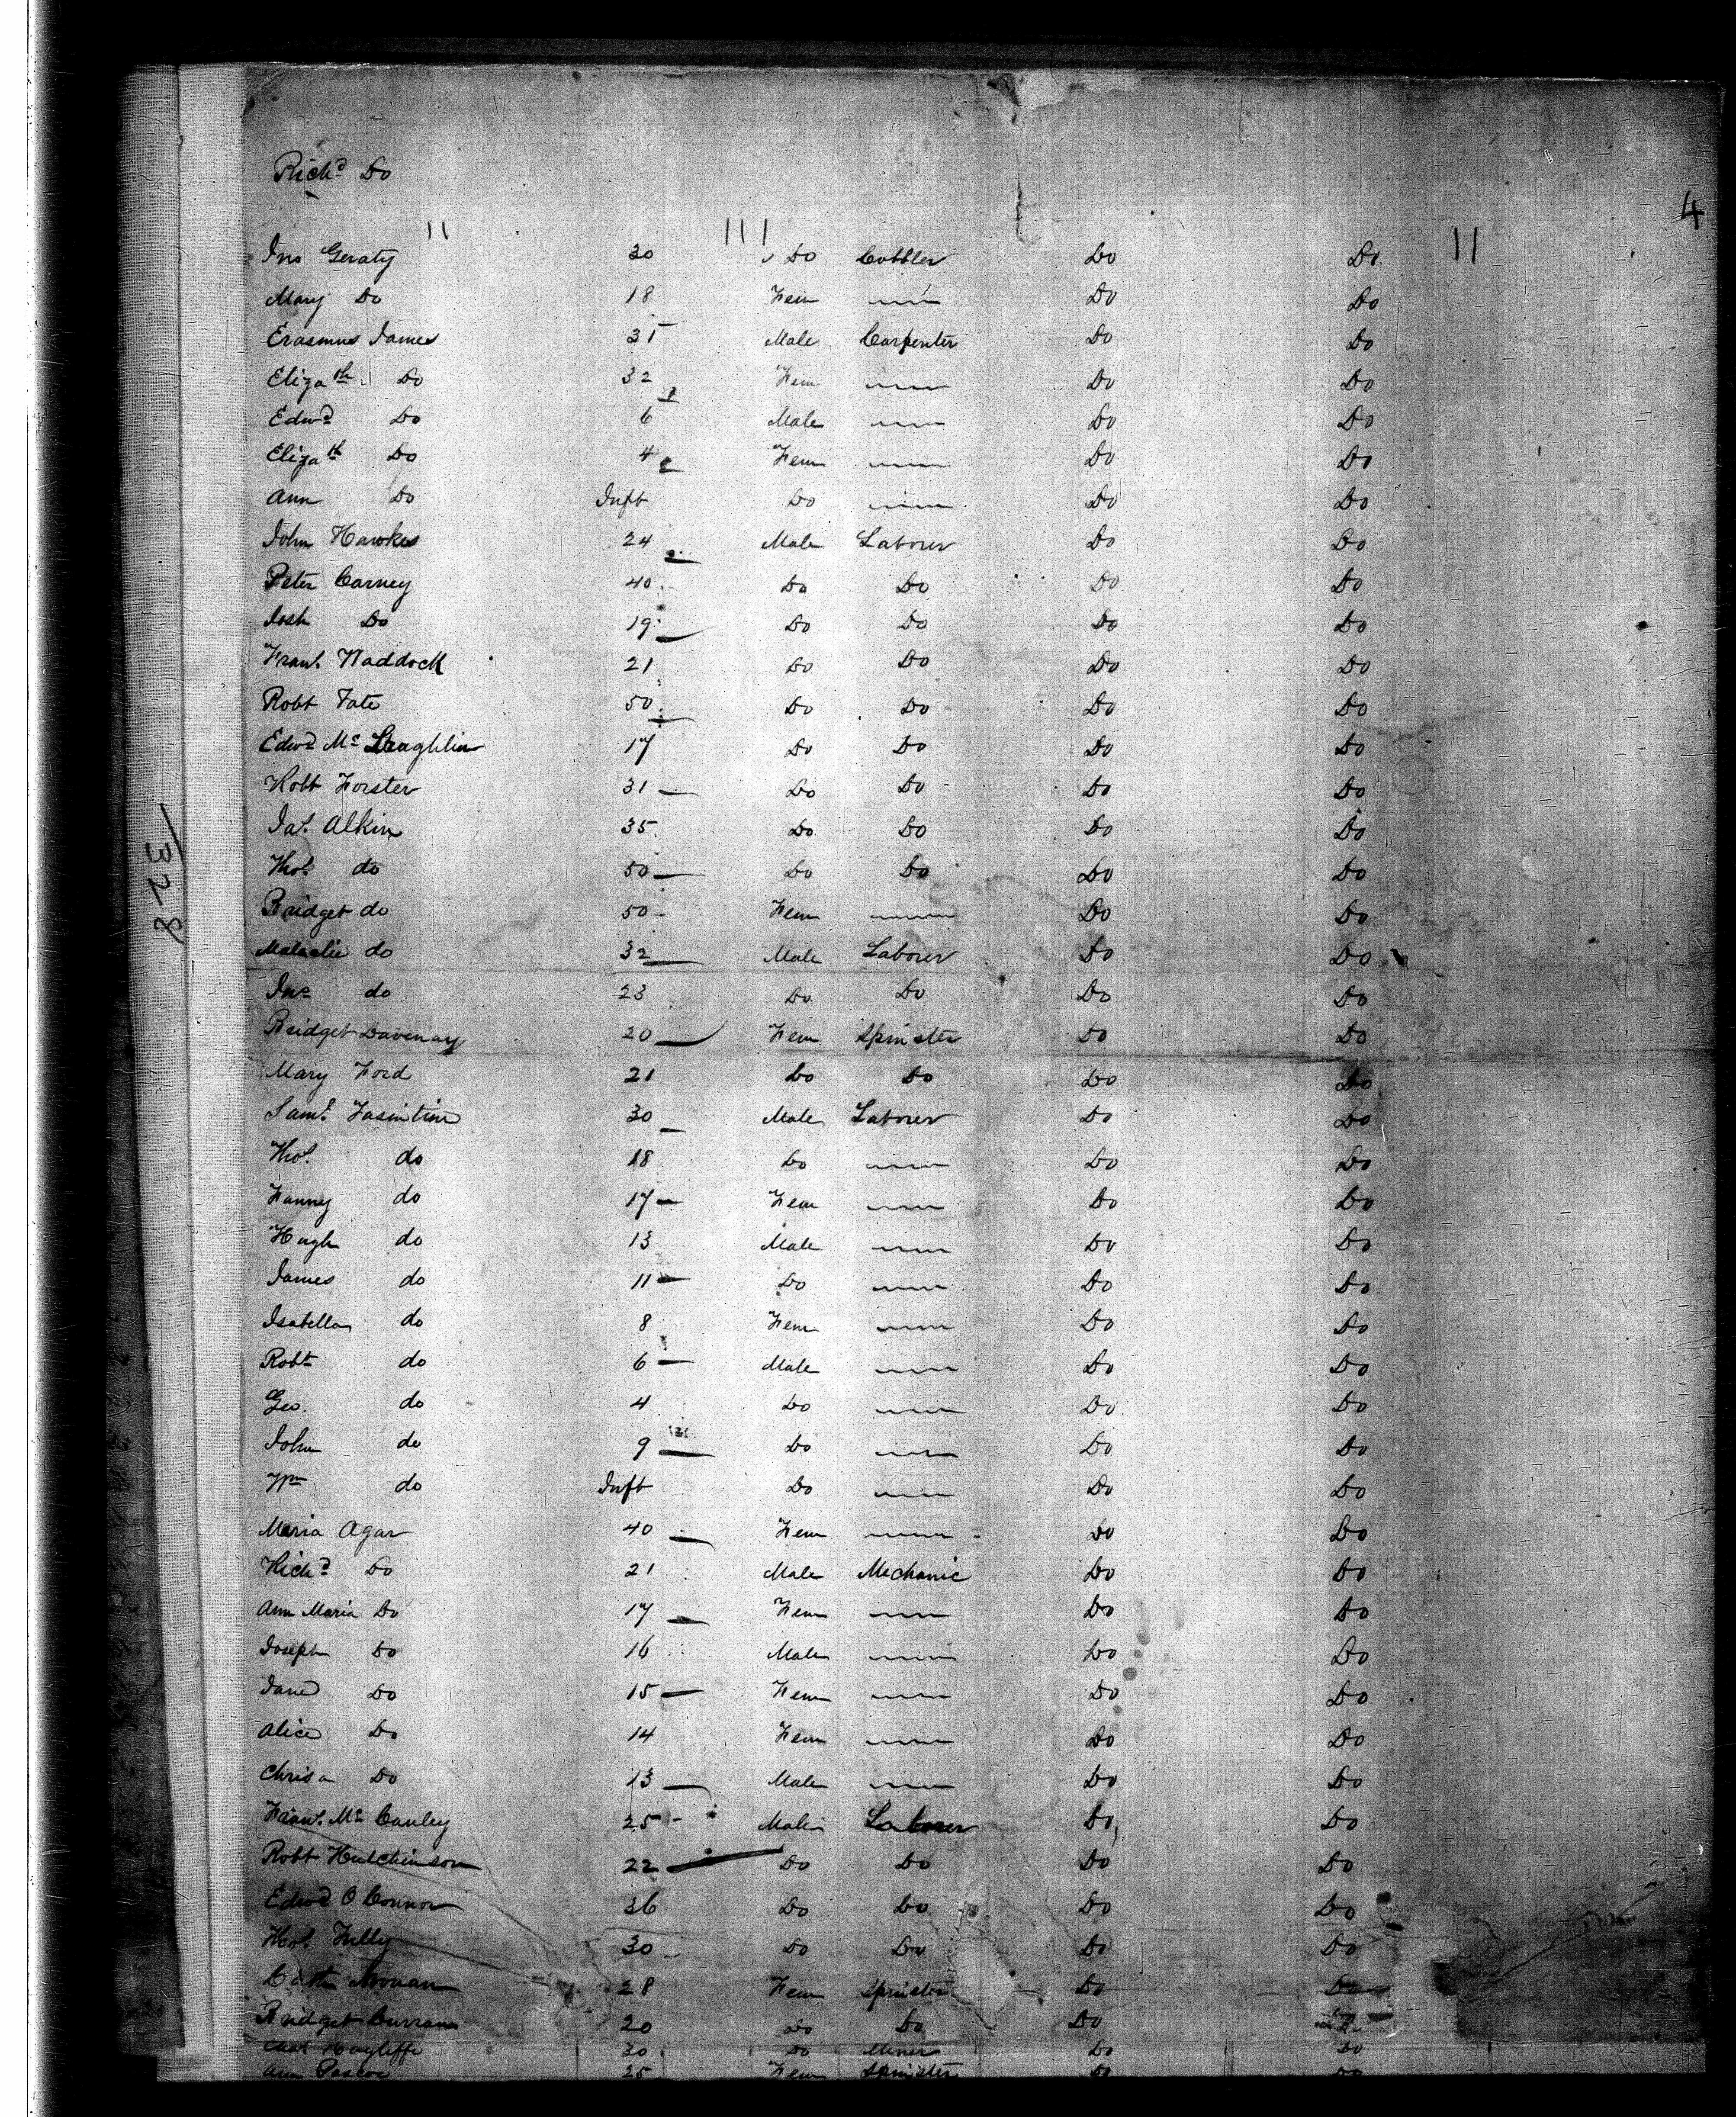 Richd Do
4
Jno Geraty 30 Do Cobbler Do Do
Mary Do 18 Fem Do Do
Erasmus James 35 Male Carpenter Do Do
Elizath Do 32 Fem Do Do
Edwd Do 6 Male Do Do
Elizath Do 4 Fem Do Do
Ann Do Inft Do Do Do
John Hawkes 24 Male Laborer Do Do
Peter Carney 40 Do Do Do Do
Josh Do 19 Do Do Do Do
Frans. Waddock 21 Do Do Do Do
Robt Tate 50 Do Do Do Do
Edwd Mc Laughlin 17 Do Do Do Do
Robt Forster 31 Do Do Do Do
Jas. Alkin 35 Do Do Do Do
Thos. do 50 Do Do Do Do
Bridget do 50 Fem Do Do
do 32 Male Laborer Do Do
Jno do 23 Do Do Do Do
Bridget Davenay 20 Fem Spinster Do Do
Mary Ford 21 Do Do Do Do
Saml. 30 Male Laborer Do Do
Thos. do 18 Do Do Do
Fanny do 17 Fem Do Do
Hugh do 13 Male Do Do
James do 11 Do Do Do
Isabella do 8 Fem Do Do
Robt do 6 Male Do Do
Geo. do 4 Do Do Do
John do 9 Do Do Do
Wm do Inft Do Do Do
Maria Agar 40 Fem Do Do
Richd Do 21 Male Mechanic Do Do
Ann Maria Do 17 Fem Do Do
Joseph Do 16 Male Do Do
Jane Do 15 Fem Do Do
Alice Do 14 Fem Do Do
Chrisr Do 13 Male Do Do
Frans. Mc Cauley 25 Male Laborer Do Do
Robt Hutchinson 22 Do Do Do Do
Edwd O Connor 36 Do Do Do Do
Thos. Tully 30 Do Do Do Do
Cath 28 Fem Spinster Do Do
Bridget Curran 20 Do Do Do
30 Do Miner Do Do
Ann Pascoe 25 Fem Spinster Do Do
328